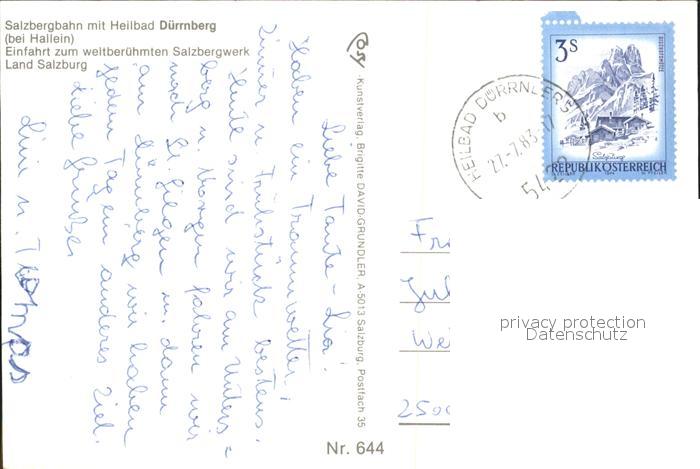 Salzbergbahn mit Heilbad Dürrnberg
(bei Hallein)
Einfahrt zum weltberühmten Salzbergwerk
Land Salzburg
Liebe Tante Lisi!
Haben ein Traumwetter,
Zimmer u. Frühstück bestens.
Heute sind wir am Unters=
berg u. Morgen fahren wir
nach St. Gilgen u. dann
am Dürrnberg wir haben
jeden Tag ein anderes Ziel.
Liebe Grüße
Lini u. Thomas
Kunstverlag, Brigitte DAVID-GRÜNDLER, A-5013 Salzburg, Postfach 35
Nr. 644
3S
BISCHOFSMÜTZE
Salzburg
REPUBLIK ÖSTERREICH
HEILBAD DÜRRNBERG
b
27.-7.83-17
54
Fr
Jul
We
2500
privacy protection
Datenschutz